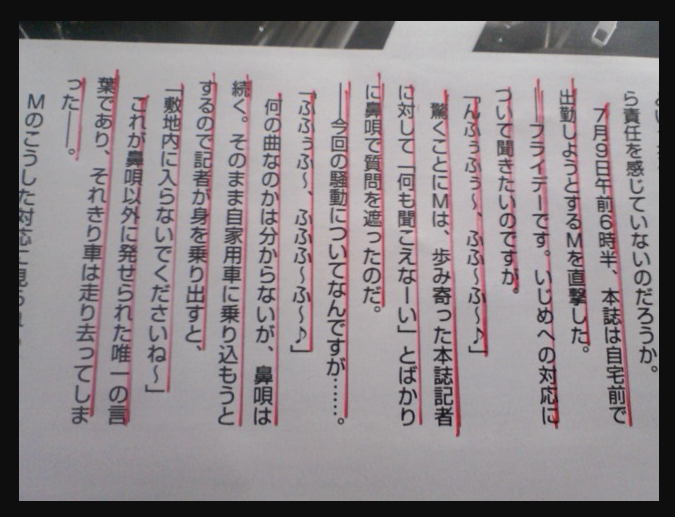 ら責任を感じていないのだろうか。
7月9日午前6時半、本誌は自宅前で
出勤しようとするMを直撃した。
――フライデーです。いじめへの対応に
ついて聞きたいのですが。
「んふぅふぅ～、ふふ～ふ～♪」
驚くことにMは、歩み寄った本誌記者
に対して「何も聞こえなーい」とばかり
に鼻唄で質問を遮ったのだ。
――今回の騒動についてなんですが……。
「ふふぅふ～、ふふふ～ふ～♪」
何の曲なのかは分からないが、鼻唄は
続く。そのまま自家用車に乗り込もうと
するので記者が身を乗り出すと、
「敷地内に入らないでくださいね～」
これが鼻唄以外に発せられた唯一の言
葉であり、それきり車は走り去ってしま
った――。
Mのこうした対応に